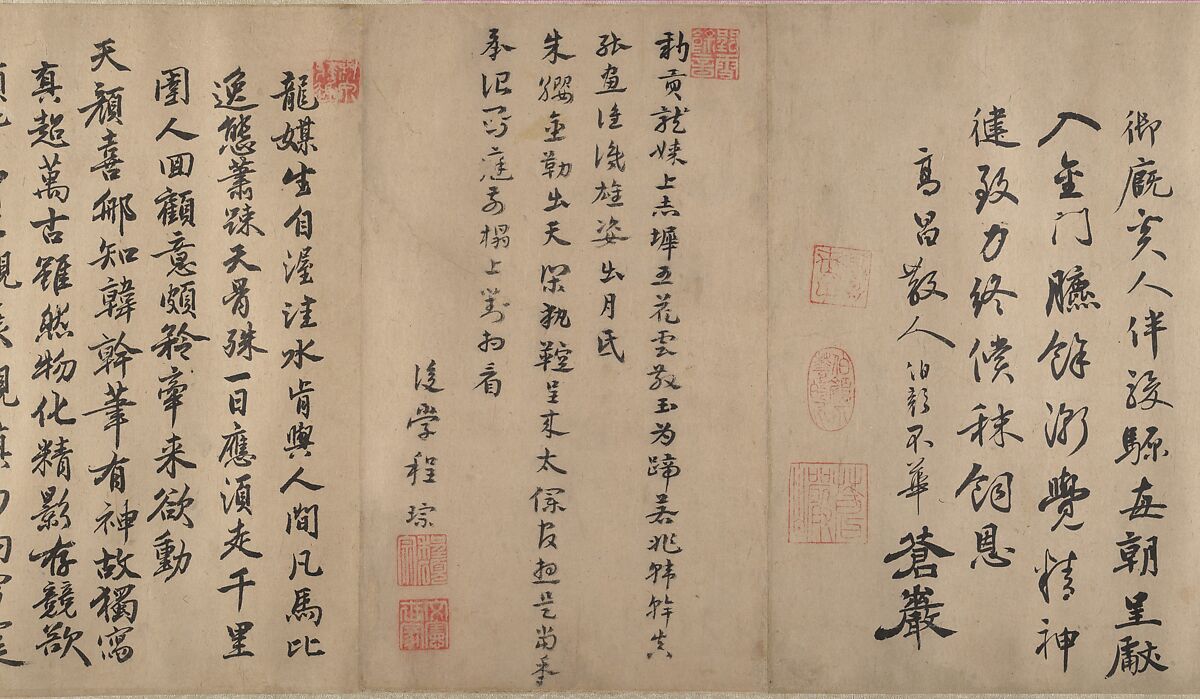 御廄奚人伴駿騵每朝呈獻
入金門臕餘漸覺精神
健致力終償秣飼恩
高昌散人伯顏不華蒼巖
新貢龍媒上赤墀五花雲散玉為蹄若非韓幹真
張畫誰識雄姿出月氏
朱纓金勒出天閑執鞚呈來太僕官想是當年
承詔寫庭前榻上對相看
後學程琮
龍媒生自渥洼水肯與人間凡馬比
逸態蕭踈天骨殊一日應須走千里
圉人回顧意頗矜牽来欲動
天顏喜那知韓幹筆有神故獨寫
真超萬古雖然物化精影存競欲